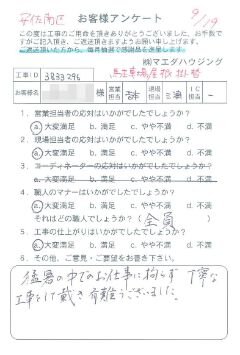 安佐南区
お客様アンケート
9/19
この度は工事のご用命を頂きありがとうございました。お手数で
すがご記入頂き、ご返送頂きますようお願い申し上げます。
ご返送頂いた方から、毎月抽選で感謝品を進呈します。
㈱マエダハウジング
工事ID 3833296
駐車場屋根掛替
様 営業担当 工事担当 IC担当
1. 営業担当者の応対はいかがでしたでしょうか？
a. 大変満足 b. 満足 c. やや不満 d. 不満
2. 現場担当者の応対はいかがでしたでしょうか？
a. 大変満足 b. 満足 c. やや不満 d. 不満
3. コーディネーターの応対はいかがでしたでしょうか？
a. 大変満足 b. 満足 c. やや不満 d. 不満
4. 職人のマナーはいかがでしたでしょうか？
a. 大変満足 b. 満足 c. やや不満 d. 不満
それはどの職人でしょうか？（全員）
5. 工事の仕上がりはいかがでしたでしょうか？
a. 大変満足 b. 満足 c. やや不満 d. 不満
6. その他、ご意見・ご要望をお書き下さい。
猛暑の中でのお仕事に拘らず 丁寧な
工事をして戴き有難うございました。